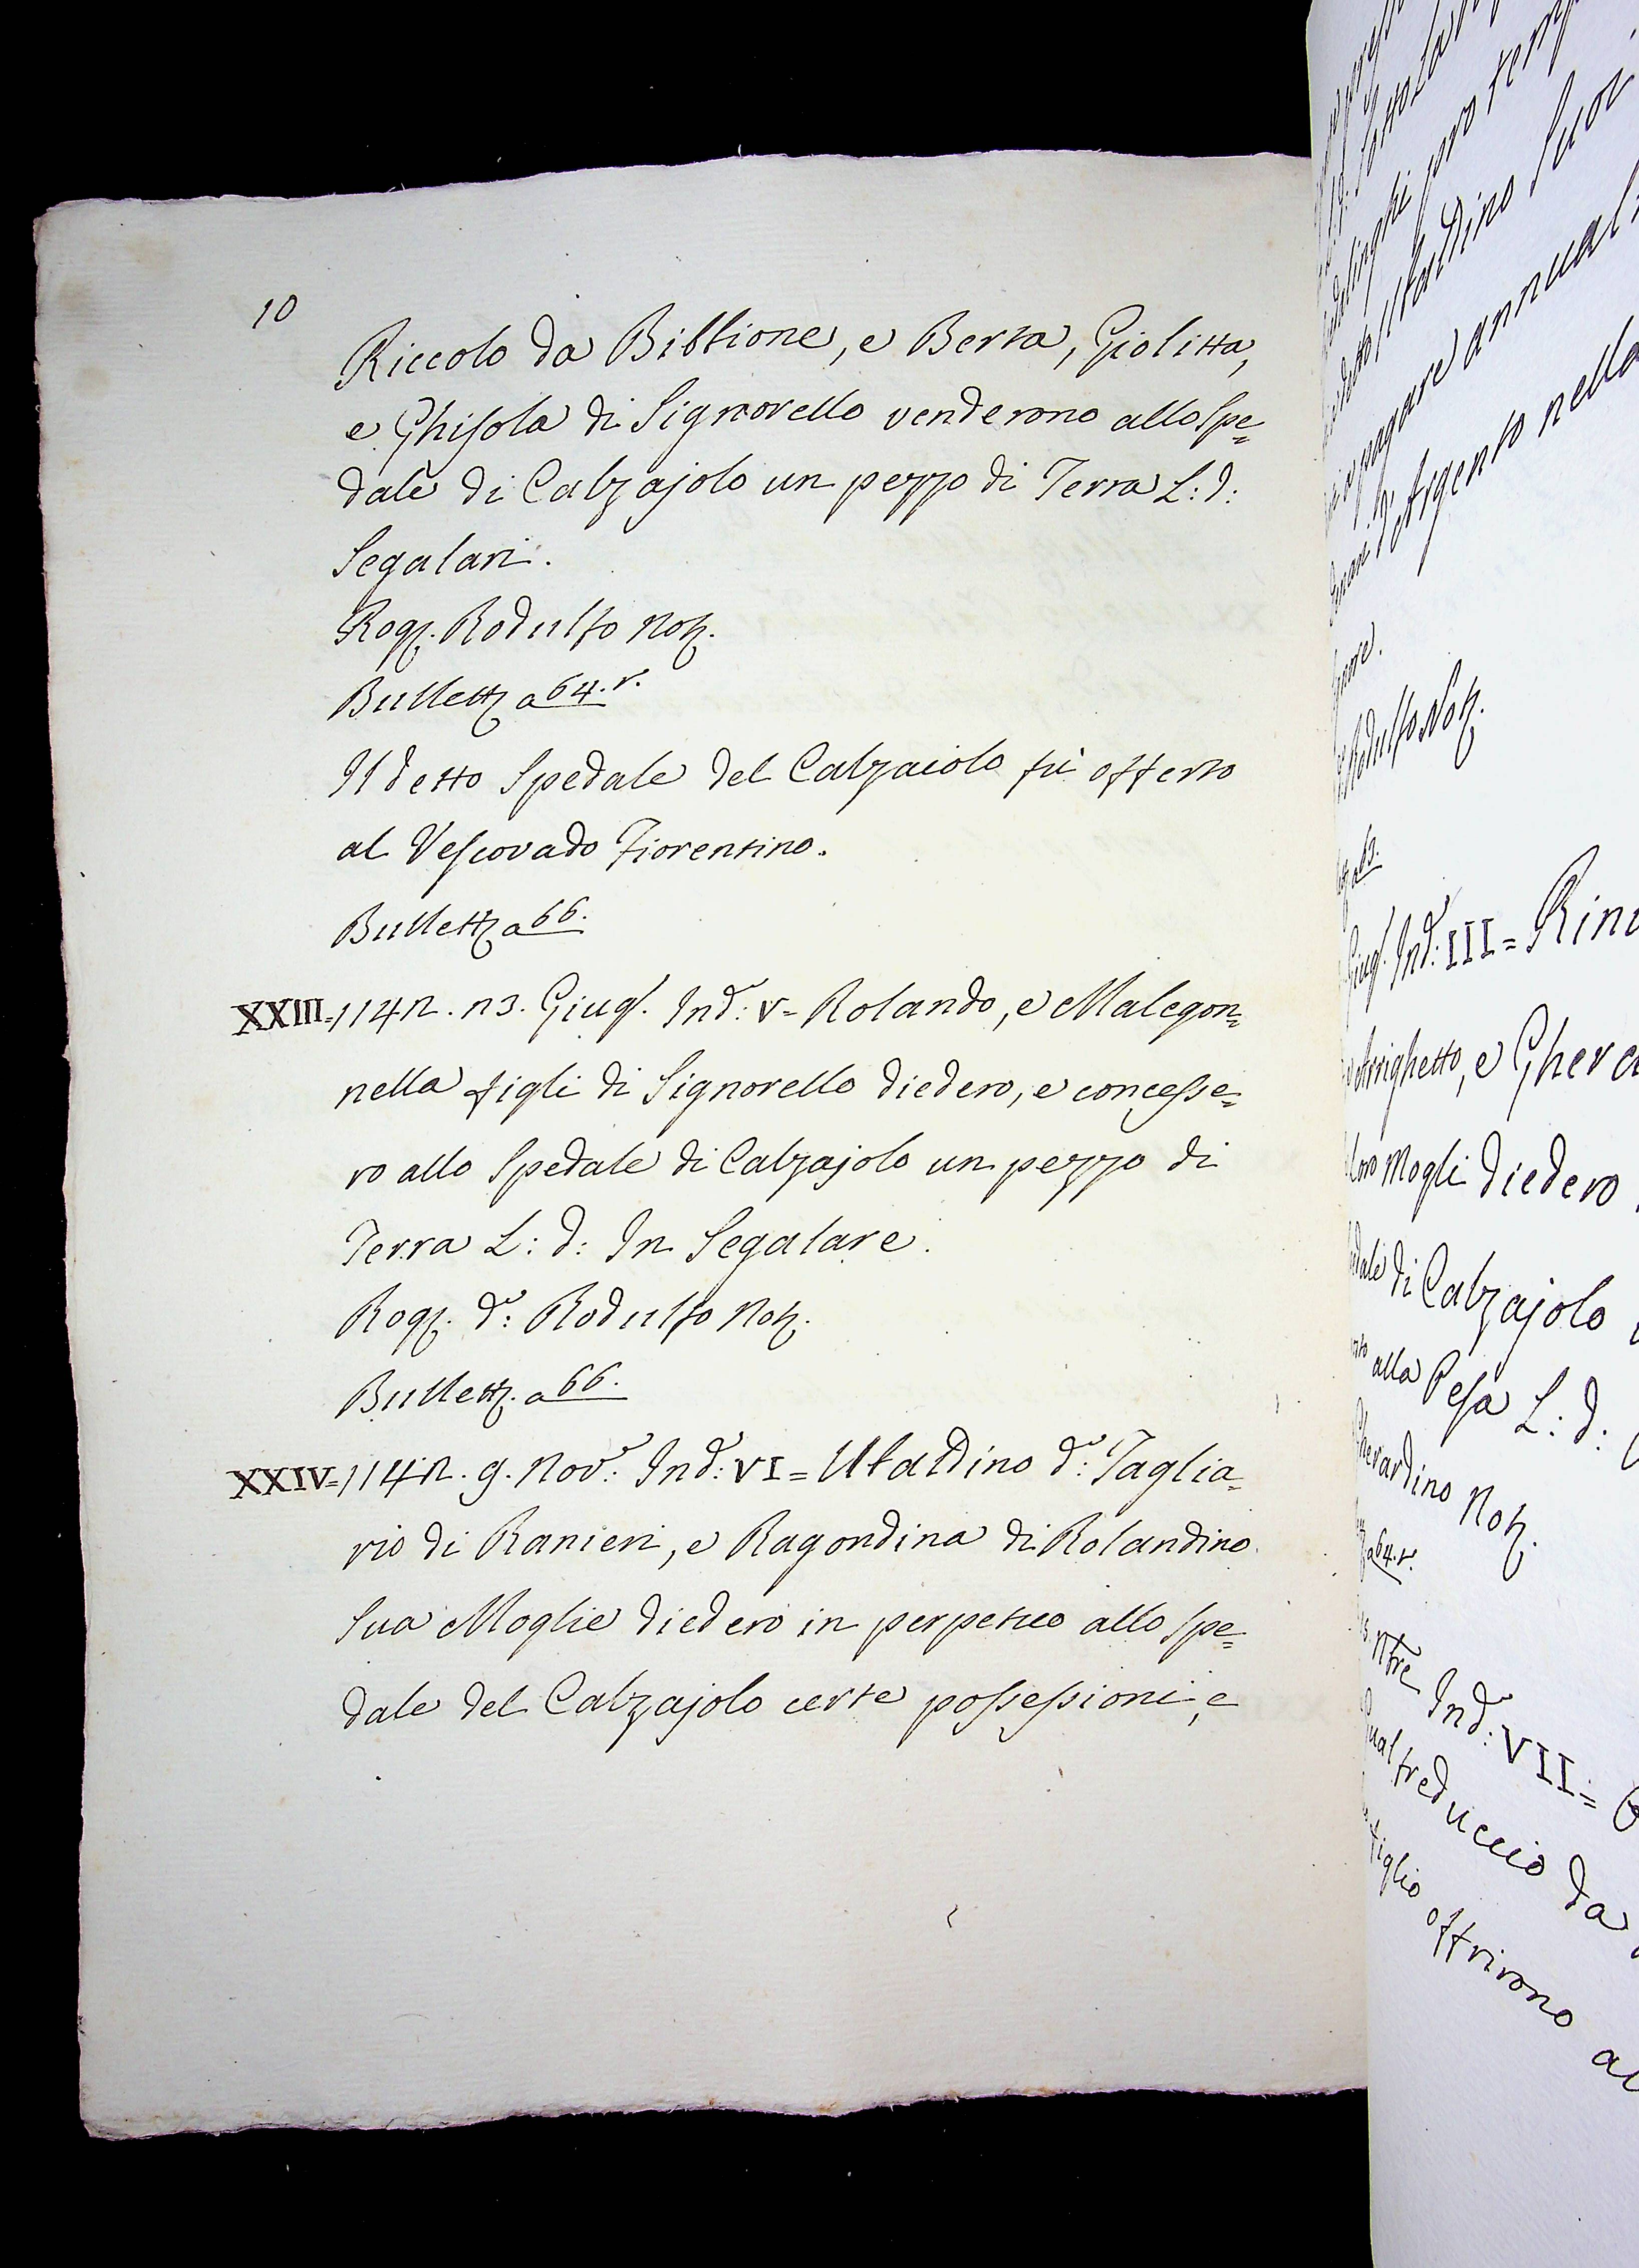 10
Riccolo da Bibbione, e Berta, Giolitta,
e Ghisola di Signorello venderono allo Spe=
dale di Calzajolo un pezzo di Terra L: d:
Segalari.
Rog. Rodulfo Not.
Bullett. a 64. r.
Il detto Spedale del Calzaiolo fù offerto
al Vescovado Fiorentino.
Bullett. a 66.
XXIII=1142. 23. Giug. Ind: V= Rolando, e Malegon=
nella figli di Signorello diedero, e concesse=
ro allo Spedale di Calzajolo un pezzo di
Terra L: d: In Segalare.
Rog. d: Rodulfo Not.
Bullett. a 66.
XXIV=1142. 9. Nov: Ind: VI= Ubaldino d: Taglia=
rio di Ranieri, e Ragondina di Rolandino
Sua Moglie diedero in perpetuo allo Spe=
dale del Calzajolo certe possessioni, e
pagare annual
Argento nella
Rodulfo Not.
Giug. Ind: III= Rinu
Arrighetto, e Ghera
loro Mogli diedero
di Calzajolo
alla Pesa L: d:
Gherardino Not.
a 64. r.
Ind: VII=
da
figlio offrirono al